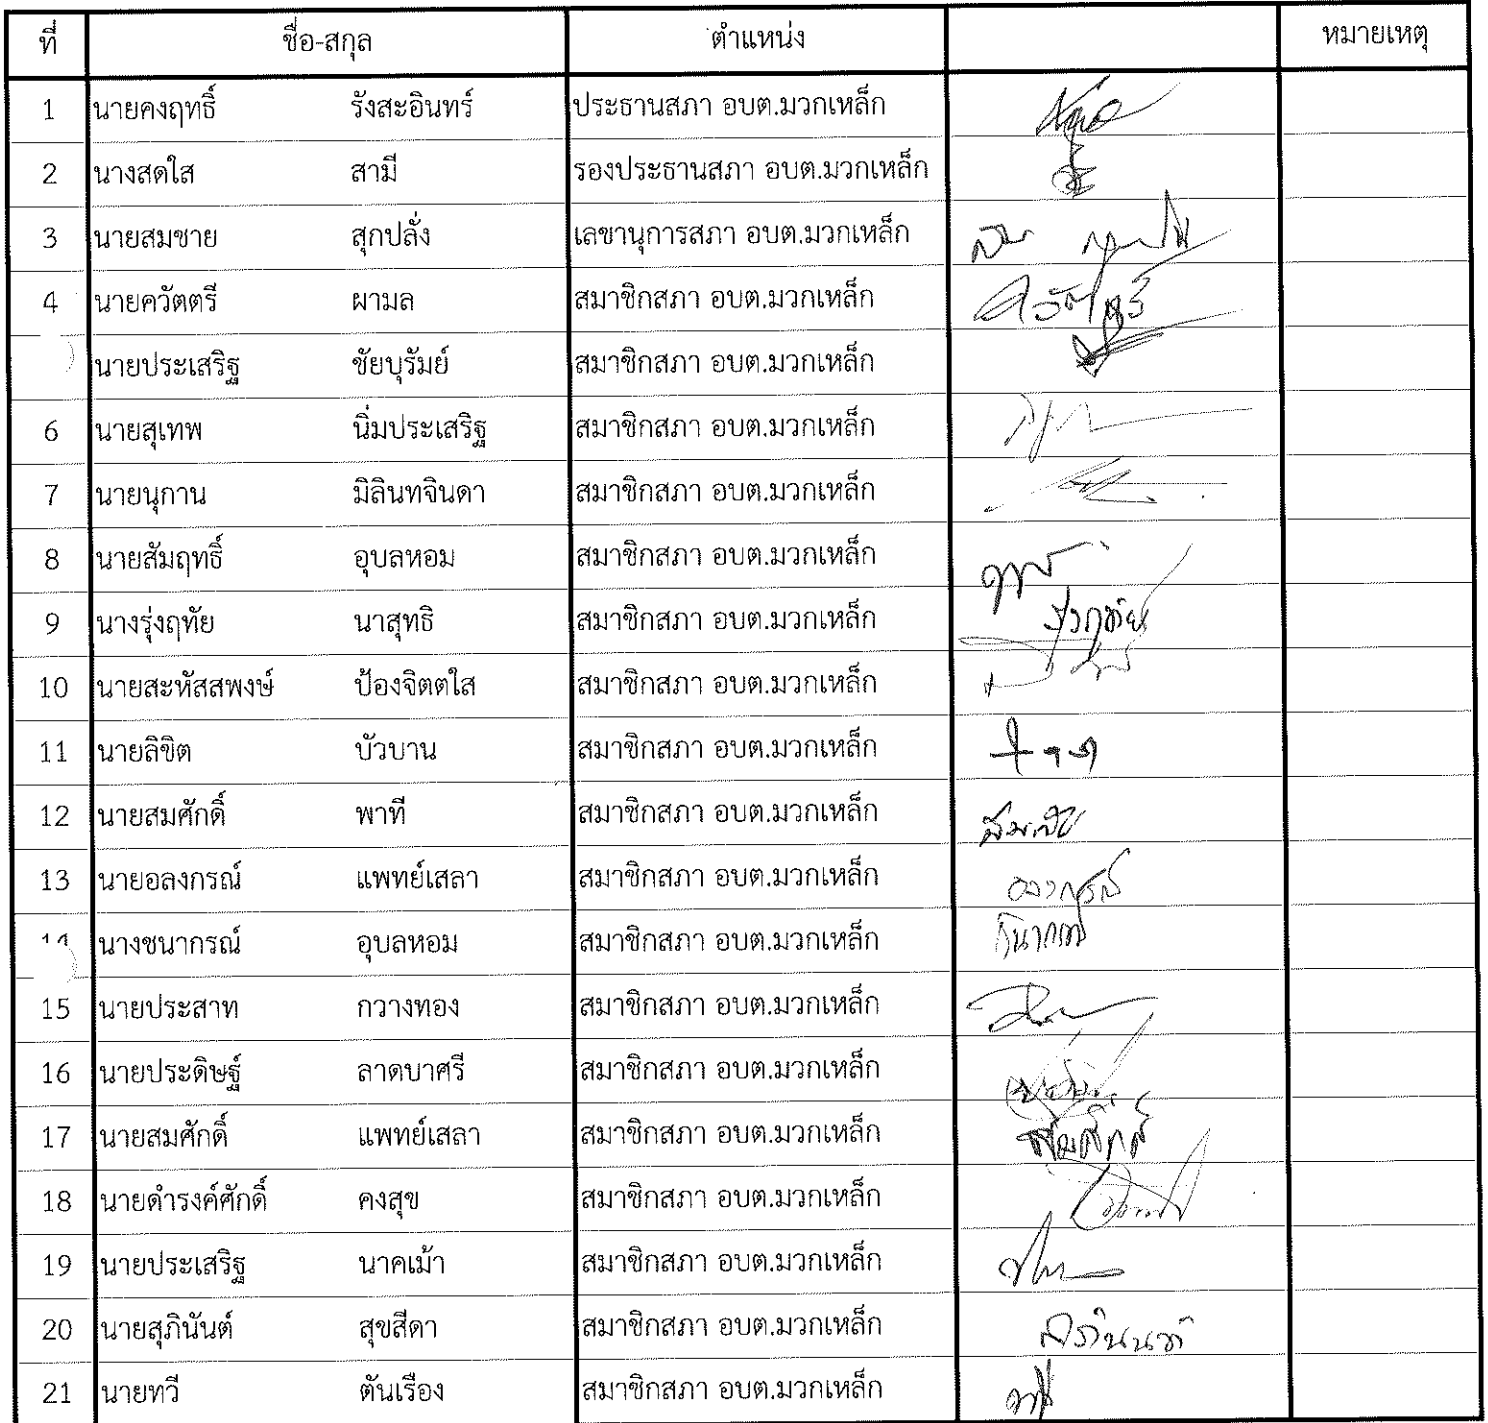 ที่ ชื่อ-สกุล ตำแหน่ง หมายเหตุ
1 นายคงฤทธิ์ รังสะอินทร์ ประธานสภา อบต.มวกเหล็ก
2 นางสดใส สามี รองประธานสภา อบต.มวกเหล็ก
3 นายสมชาย สุกปลั่ง เลขานุการสภา อบต.มวกเหล็ก
4 นายควัตตรี ผามล สมาชิกสภา อบต.มวกเหล็ก
นายประเสริฐ ชัยบุรัมย์ สมาชิกสภา อบต.มวกเหล็ก
6 นายสุเทพ นิ่มประเสริฐ สมาชิกสภา อบต.มวกเหล็ก
7 นายนุกาน มิลินทจินดา สมาชิกสภา อบต.มวกเหล็ก
8 นายสัมฤทธิ์ อุบลหอม สมาชิกสภา อบต.มวกเหล็ก
9 นางรุ่งฤทัย นาสุทธิ สมาชิกสภา อบต.มวกเหล็ก รุ่งฤทัย
10 นายสะหัสสพงษ์ ป้องจิตตใส สมาชิกสภา อบต.มวกเหล็ก
11 นายลิขิต บัวบาน สมาชิกสภา อบต.มวกเหล็ก
12 นายสมศักดิ์ พาที สมาชิกสภา อบต.มวกเหล็ก
13 นายอลงกรณ์ แพทย์เสลา สมาชิกสภา อบต.มวกเหล็ก อลงกรณ์
14 นางชนากรณ์ อุบลหอม สมาชิกสภา อบต.มวกเหล็ก
15 นายประสาท กวางทอง สมาชิกสภา อบต.มวกเหล็ก
16 นายประดิษฐ์ ลาดบาศรี สมาชิกสภา อบต.มวกเหล็ก
17 นายสมศักดิ์ แพทย์เสลา สมาชิกสภา อบต.มวกเหล็ก สมศักดิ์
18 นายดำรงค์ศักดิ์ คงสุข สมาชิกสภา อบต.มวกเหล็ก
19 นายประเสริฐ นาคเม้า สมาชิกสภา อบต.มวกเหล็ก
20 นายสุภินันต์ สุขสีดา สมาชิกสภา อบต.มวกเหล็ก
21 นายทวี ตันเรือง สมาชิกสภา อบต.มวกเหล็ก